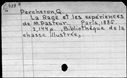 Percheron, G.
La Rage et les expériences
de M. Pasteur. Paris, 1885.
Bibliothèque de la
chasse illustrée.